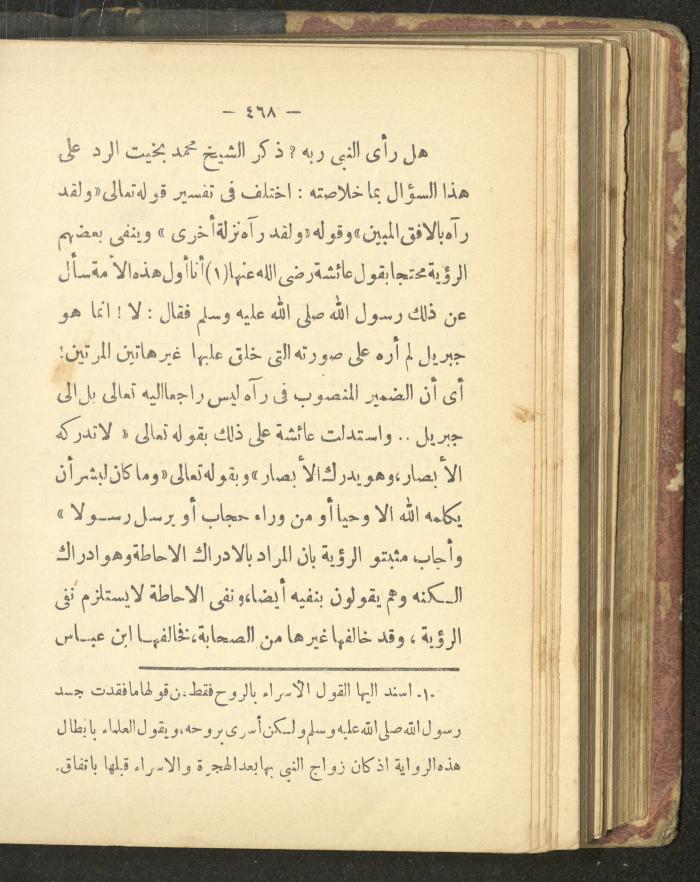 — ٤٦٨ —
هل رأى النبى ربه ؟ ذكر الشيخ محمد بخيت الرد على
هذا السؤال بما خلاصته : اختلف فى تفسير قوله تعالى «ولقد
رآه بالافق المبين» وقوله «ولقد رآه نزلة أخرى » وينفى بعضهم
الرؤية محتجا بقول عائشة رضى الله عنها (١) أنا أول هذه الأمة سأل
عن ذلك رسول الله صلى الله عليه وسلم فقال : لا ! انما هو
جبريل لم أره على صورته التى خلق عليها غير هاتين المرتين !
أى أن الضمير المنصوب فى رآه ليس راجعا اليه تعالى بل الى
جبريل .. واستدلت عائشة على ذلك بقوله تعالى « لاتدركه
الأبصار، وهو يدرك الأبصار» وبقوله تعالى «وما كان لبشر أن
يكلمه الله الا وحيا أو من وراء حجاب أو يرسل رسولا »
وأجاب مثبتو الرؤية بان المراد بالادراك الاحاطة وهو ادراك
الكنه وهم يقولون بنفيه أيضا، ونفى الاحاطة لا يستلزم نفى
الرؤية ، وقد خالفها غيرها من الصحابة، فخالفها ابن عباس
-١- اسند اليها القول الاسراء بالروح فقط، من قولها ما فقدت جسد
رسول الله صلى الله عليه وسلم ولكن أسرى بروحه، ويقول العلماء بابطال
هذه الرواية اذ كان زواج النبى بها بعد الهجرة والاسراء قبلها باتفاق.